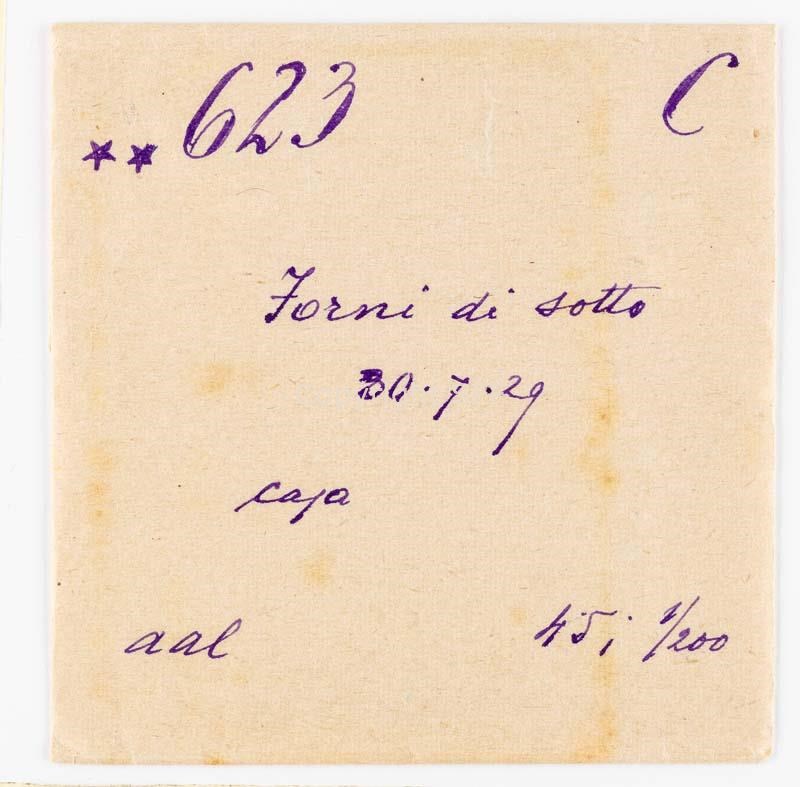 ** 623 C
Forni di sotto
30.7.29
casa
aal 45; 1/200